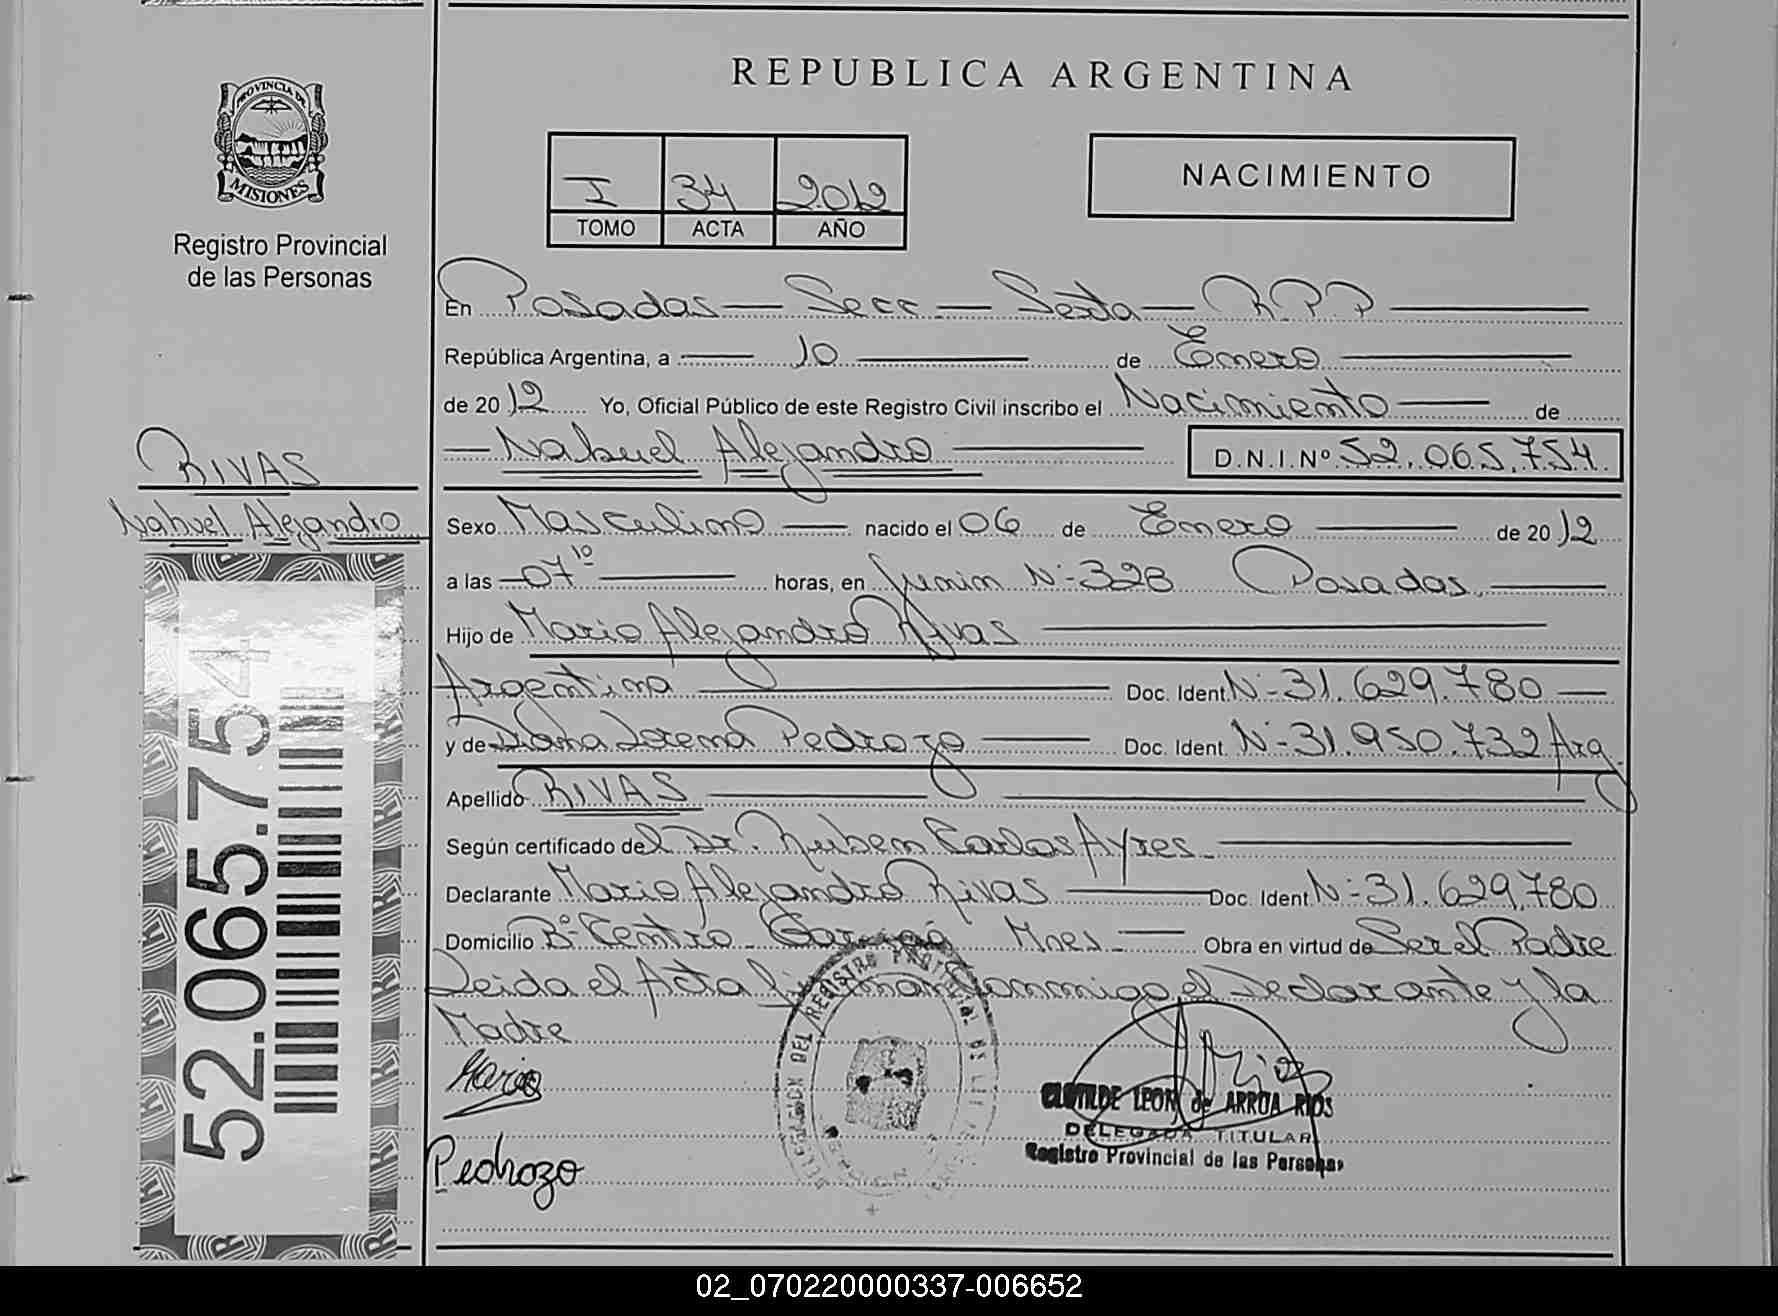 REPUBLICA ARGENTINA
PROVINCIA DE
MISIONES
Registro Provincial
de las Personas
I 34 2012
TOMO ACTA AÑO
NACIMIENTO
En Posadas - Secc - Sexta - R.P.P
República Argentina, a 10 de Enero
de 2012 Yo, Oficial Público de este Registro Civil inscribo el Nacimiento de
Nahuel Alejandro D.N.I.Nº 52.065.754
RIVAS
Nahuel Alejandro
52.065.754
Sexo Masculino nacido el 06 de Enero de 2012
a las 07 10 horas, en Junin Nº 328 Posadas
Hijo de Mario Alejandro Rivas
Argentina Doc. Ident. Nº 31.629.780
y de Lorena Pedrozo Doc. Ident. Nº 31.950.732 Arg.
Apellido RIVAS
Según certificado del Dr. Ruben Carlos Ayres
Declarante Mario Alejandro Rivas Doc. Ident. Nº 31.629.780
Domicilio Bº Centro Mnes. Obra en virtud de Ser el Padre
Leida el Acta conmigo el Declarante y la
Madre
Mario
Pedrozo
DELEGACION DEL REGISTRO PROVINCIAL DE LAS
CLOTILDE LEON de ARRUA RIOS
DELEGADA TITULAR
Registro Provincial de las Personas
02_070220000337-006652